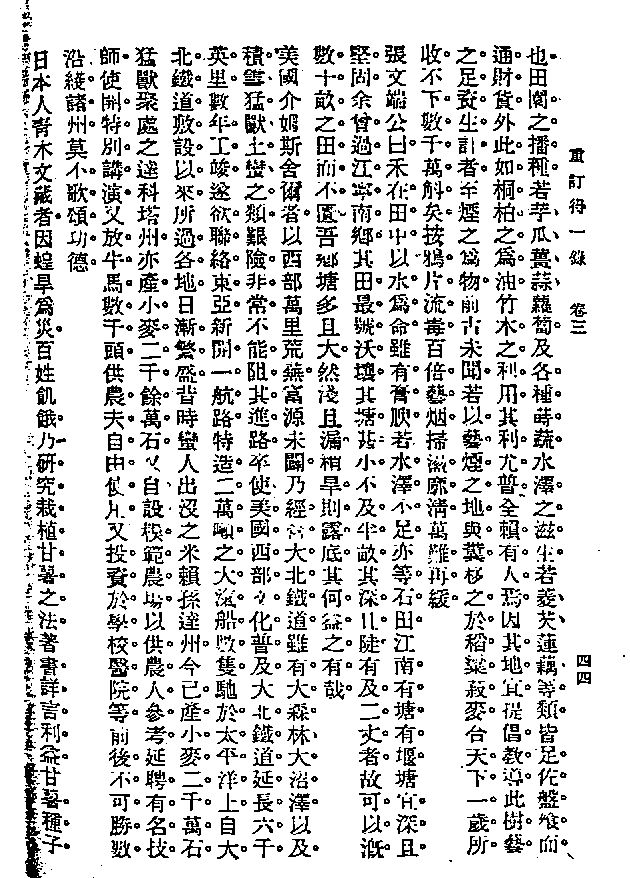 重訂得一錄 卷三
四四
也田閒之播種若芋瓜薑蒜蘿蔔及各種蒔蔬水澤之滋生若菱芡蓮藕等類皆足佐盤飧而
通財貨外此如桐柏之爲油竹木之利用其利尤普全賴有人焉因其地宜提倡敎導此樹藝
之足資生計者至煙之爲物前古未聞若以藝煙之地與糞移之於稻粱菽麥合天下一歲所
收不下數千萬斛矣按鴉片流毒百倍藝烟掃滋廓淸萬難再緩
張文端公曰禾在田中以水爲命雖有膏腴若水澤不足亦等石田江南有塘有堰塘宜深且
堅固余曾過江寧南鄉其田最號沃壤其塘甚小不及半畝其深且陡有及二丈者故可以漑
數十畝之田而不匱吾鄉塘多且大然淺且漏稍旱則露底其何益之有哉
美國介姆斯舍爾者以西部萬里荒蕪富源未闢乃經營大北鐵道雖有大森林大沼澤以及
積雪猛獸土蠻之類艱險非常不能阻其進路卒使美國西部文化普及大北鐵道延長六千
英里數年工竣遂欲聯絡東亞新開一航路特造二萬噸之大滊船數隻馳於太平洋上自大
北鐵道敷設以來所過各地日漸繁盛昔時蠻人出沒之米賴孫達州今已產小麥二千萬石
猛獸聚處之達科塔州亦產小麥二千餘萬石又自設模範農場以供農人參考延聘有名技
師使開特別講演又放牛馬數千頭供農夫自由使用又投資於學校醫院等前後不可勝數
沿綫諸州莫不歌頌功德
日本人靑木文藏者因蝗旱爲災百姓飢餓乃硏究栽植甘薯之法著書詳言利益甘薯種子